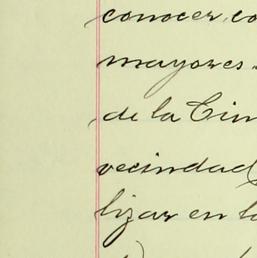 conocer, co
mayores
de la Cin
vecindad
lizar en la